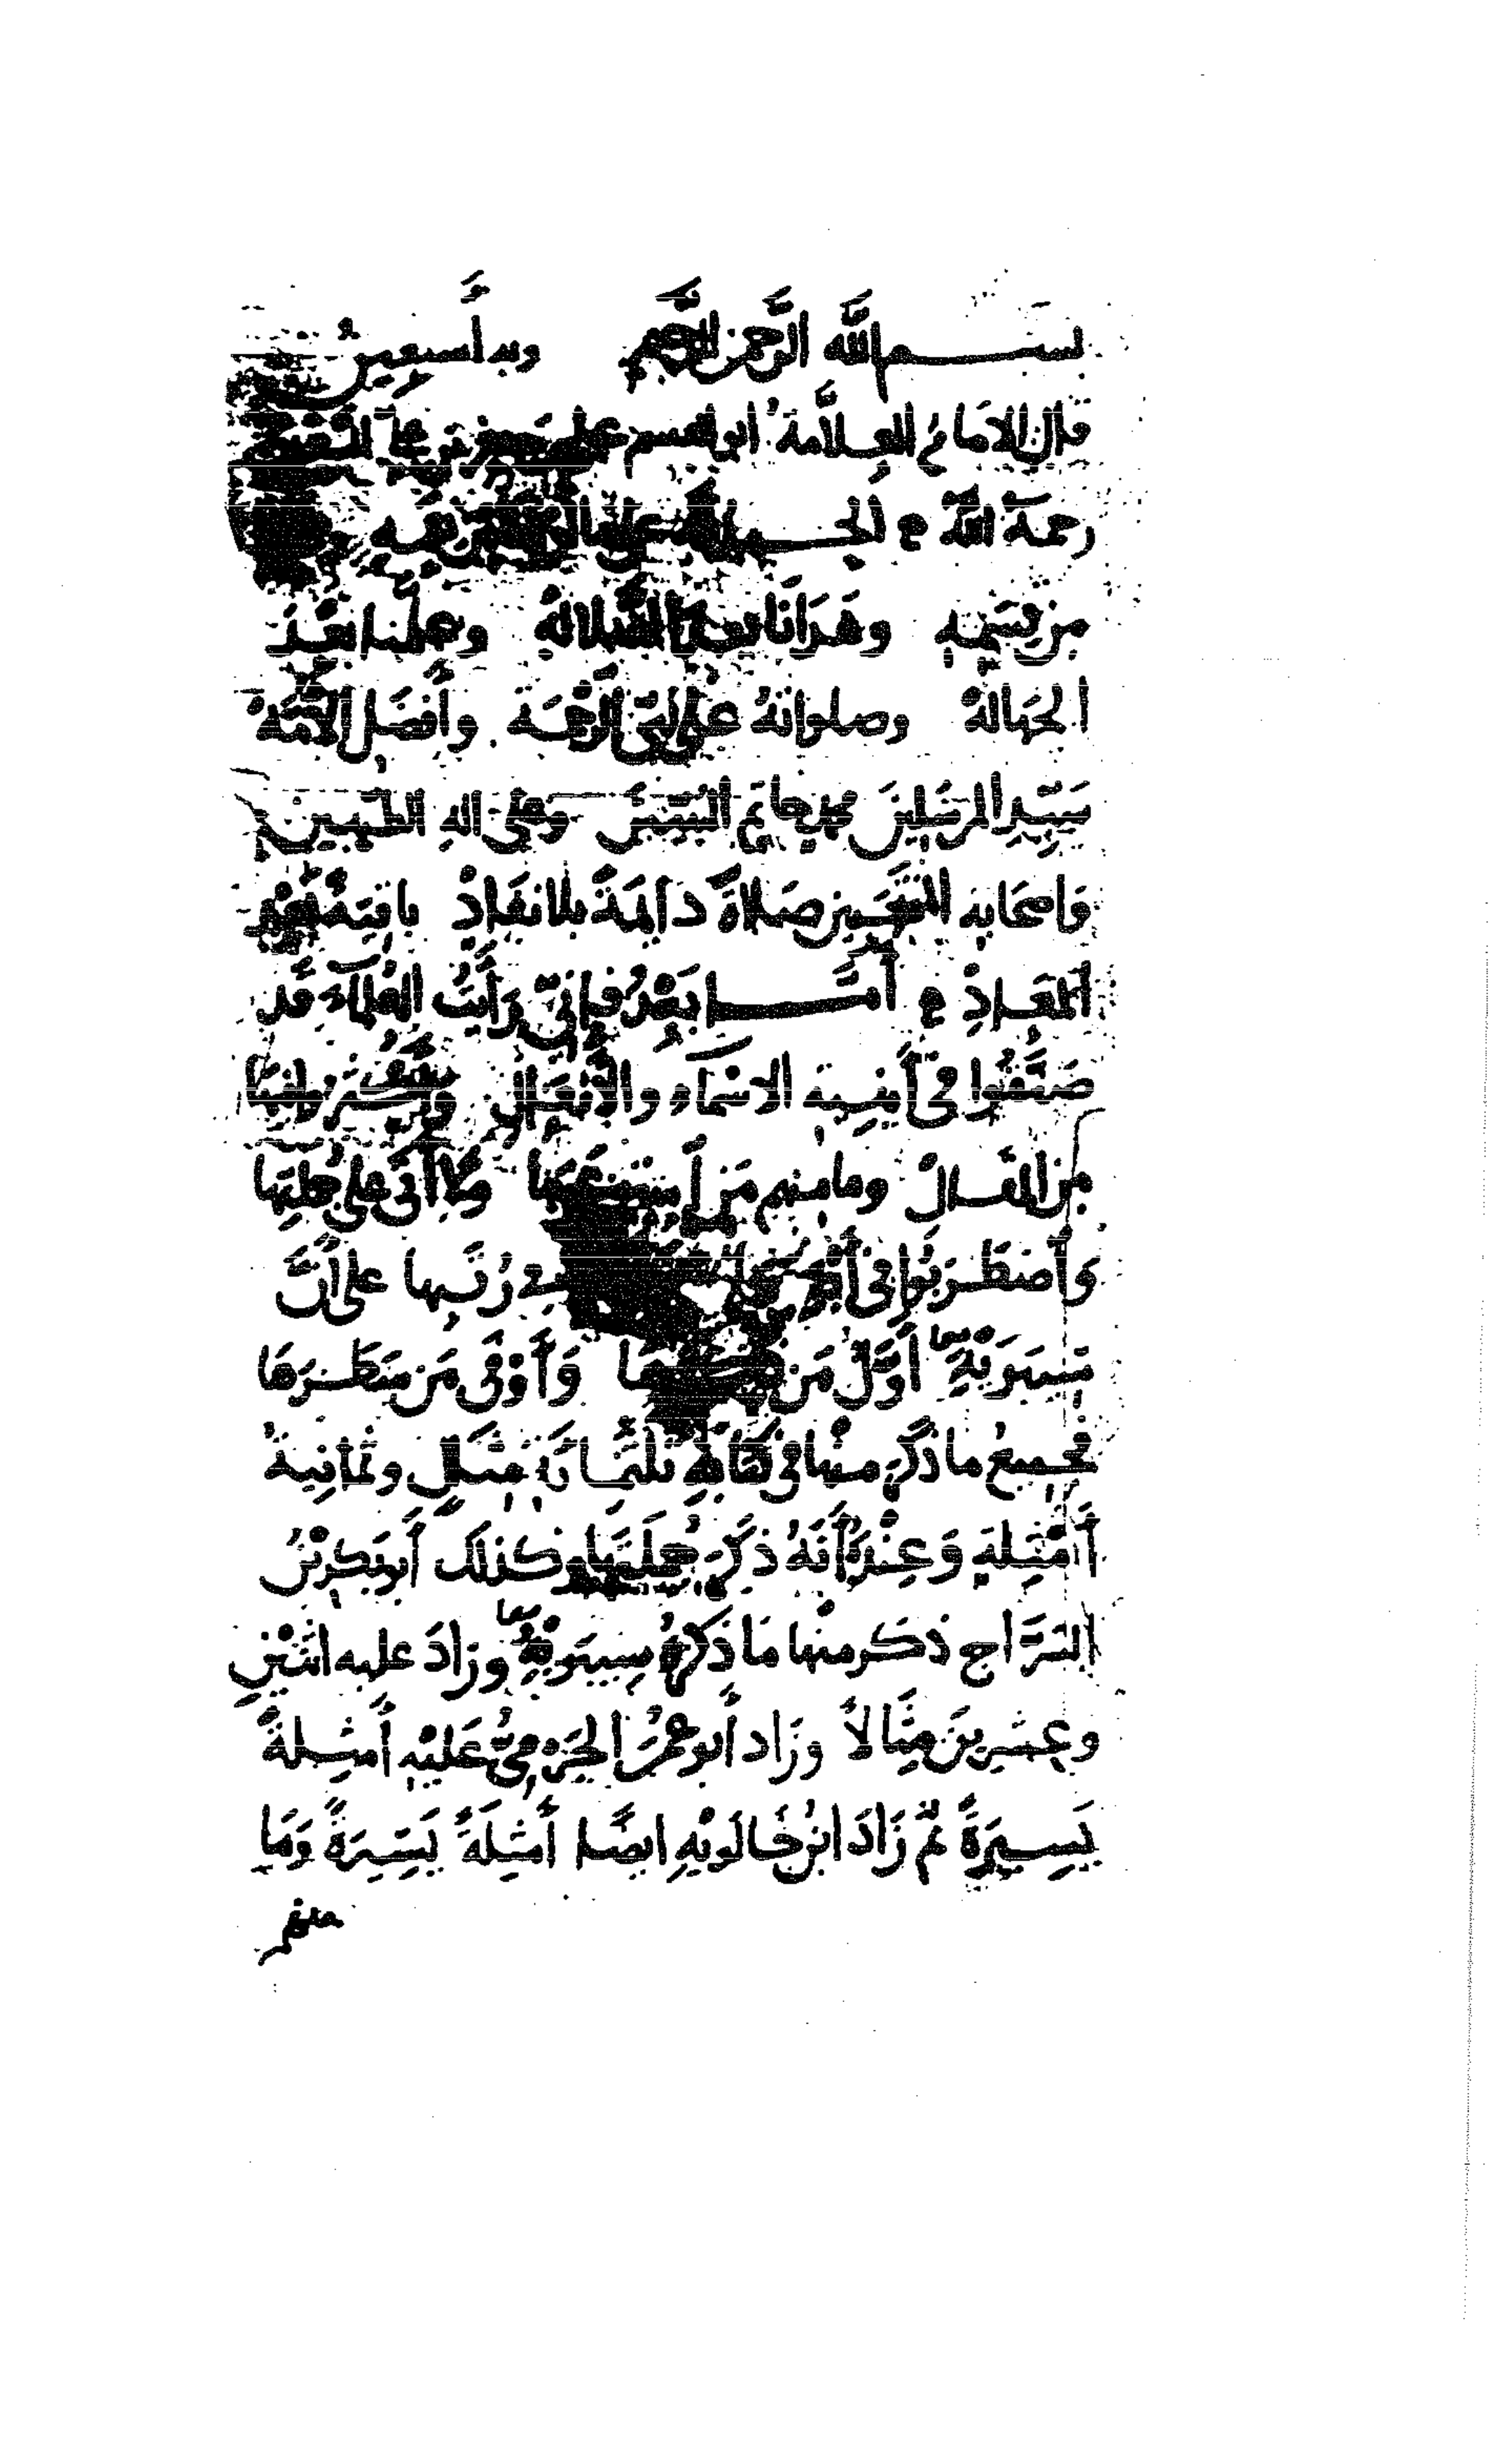 بسم الله الرحمن الرحيم وبه أستعين
قال الامام العلامة ابو القسم علي بن جعفر بن علي
رحمة الله الحمد لله على ما
من قسمه وهدانا بعد الضلاله وعلمنا بعد
الجهالة وصلواته على نبي الرحمة وأفضل الأئمة
سيد المرسلين محمد خاتم النبيين وعلى اله الطيبين
واصحابه المنتجبين صلاة دائمة بلا نفاد باقية
المعاد أما بعد فإني رأيت العلماء قد
صنفوا في أبنية الاسماء والأفعال وأكثروا منها
من المقال وما منهم من استوعبها ولا أتى على جملتها
وأضطربوا في في رتبها على أن
سيبويه أول من وأوفى من سطرها
فجميع ما ذكر منها في كتابه ثلثمائة مثال وثمانية
أمثلة وعنده أنه ذكر جملتها وكذلك أبو بكر بن
السراج ذكر منها ما ذكره سيبويه وزاد عليه اثنين
وعشرين مثالا وزاد أبو عمر الجرمي عليه أمثلة
يسيرة ثم زاد ابن خالويه ايضا أمثلة يسيرة وما
منهم